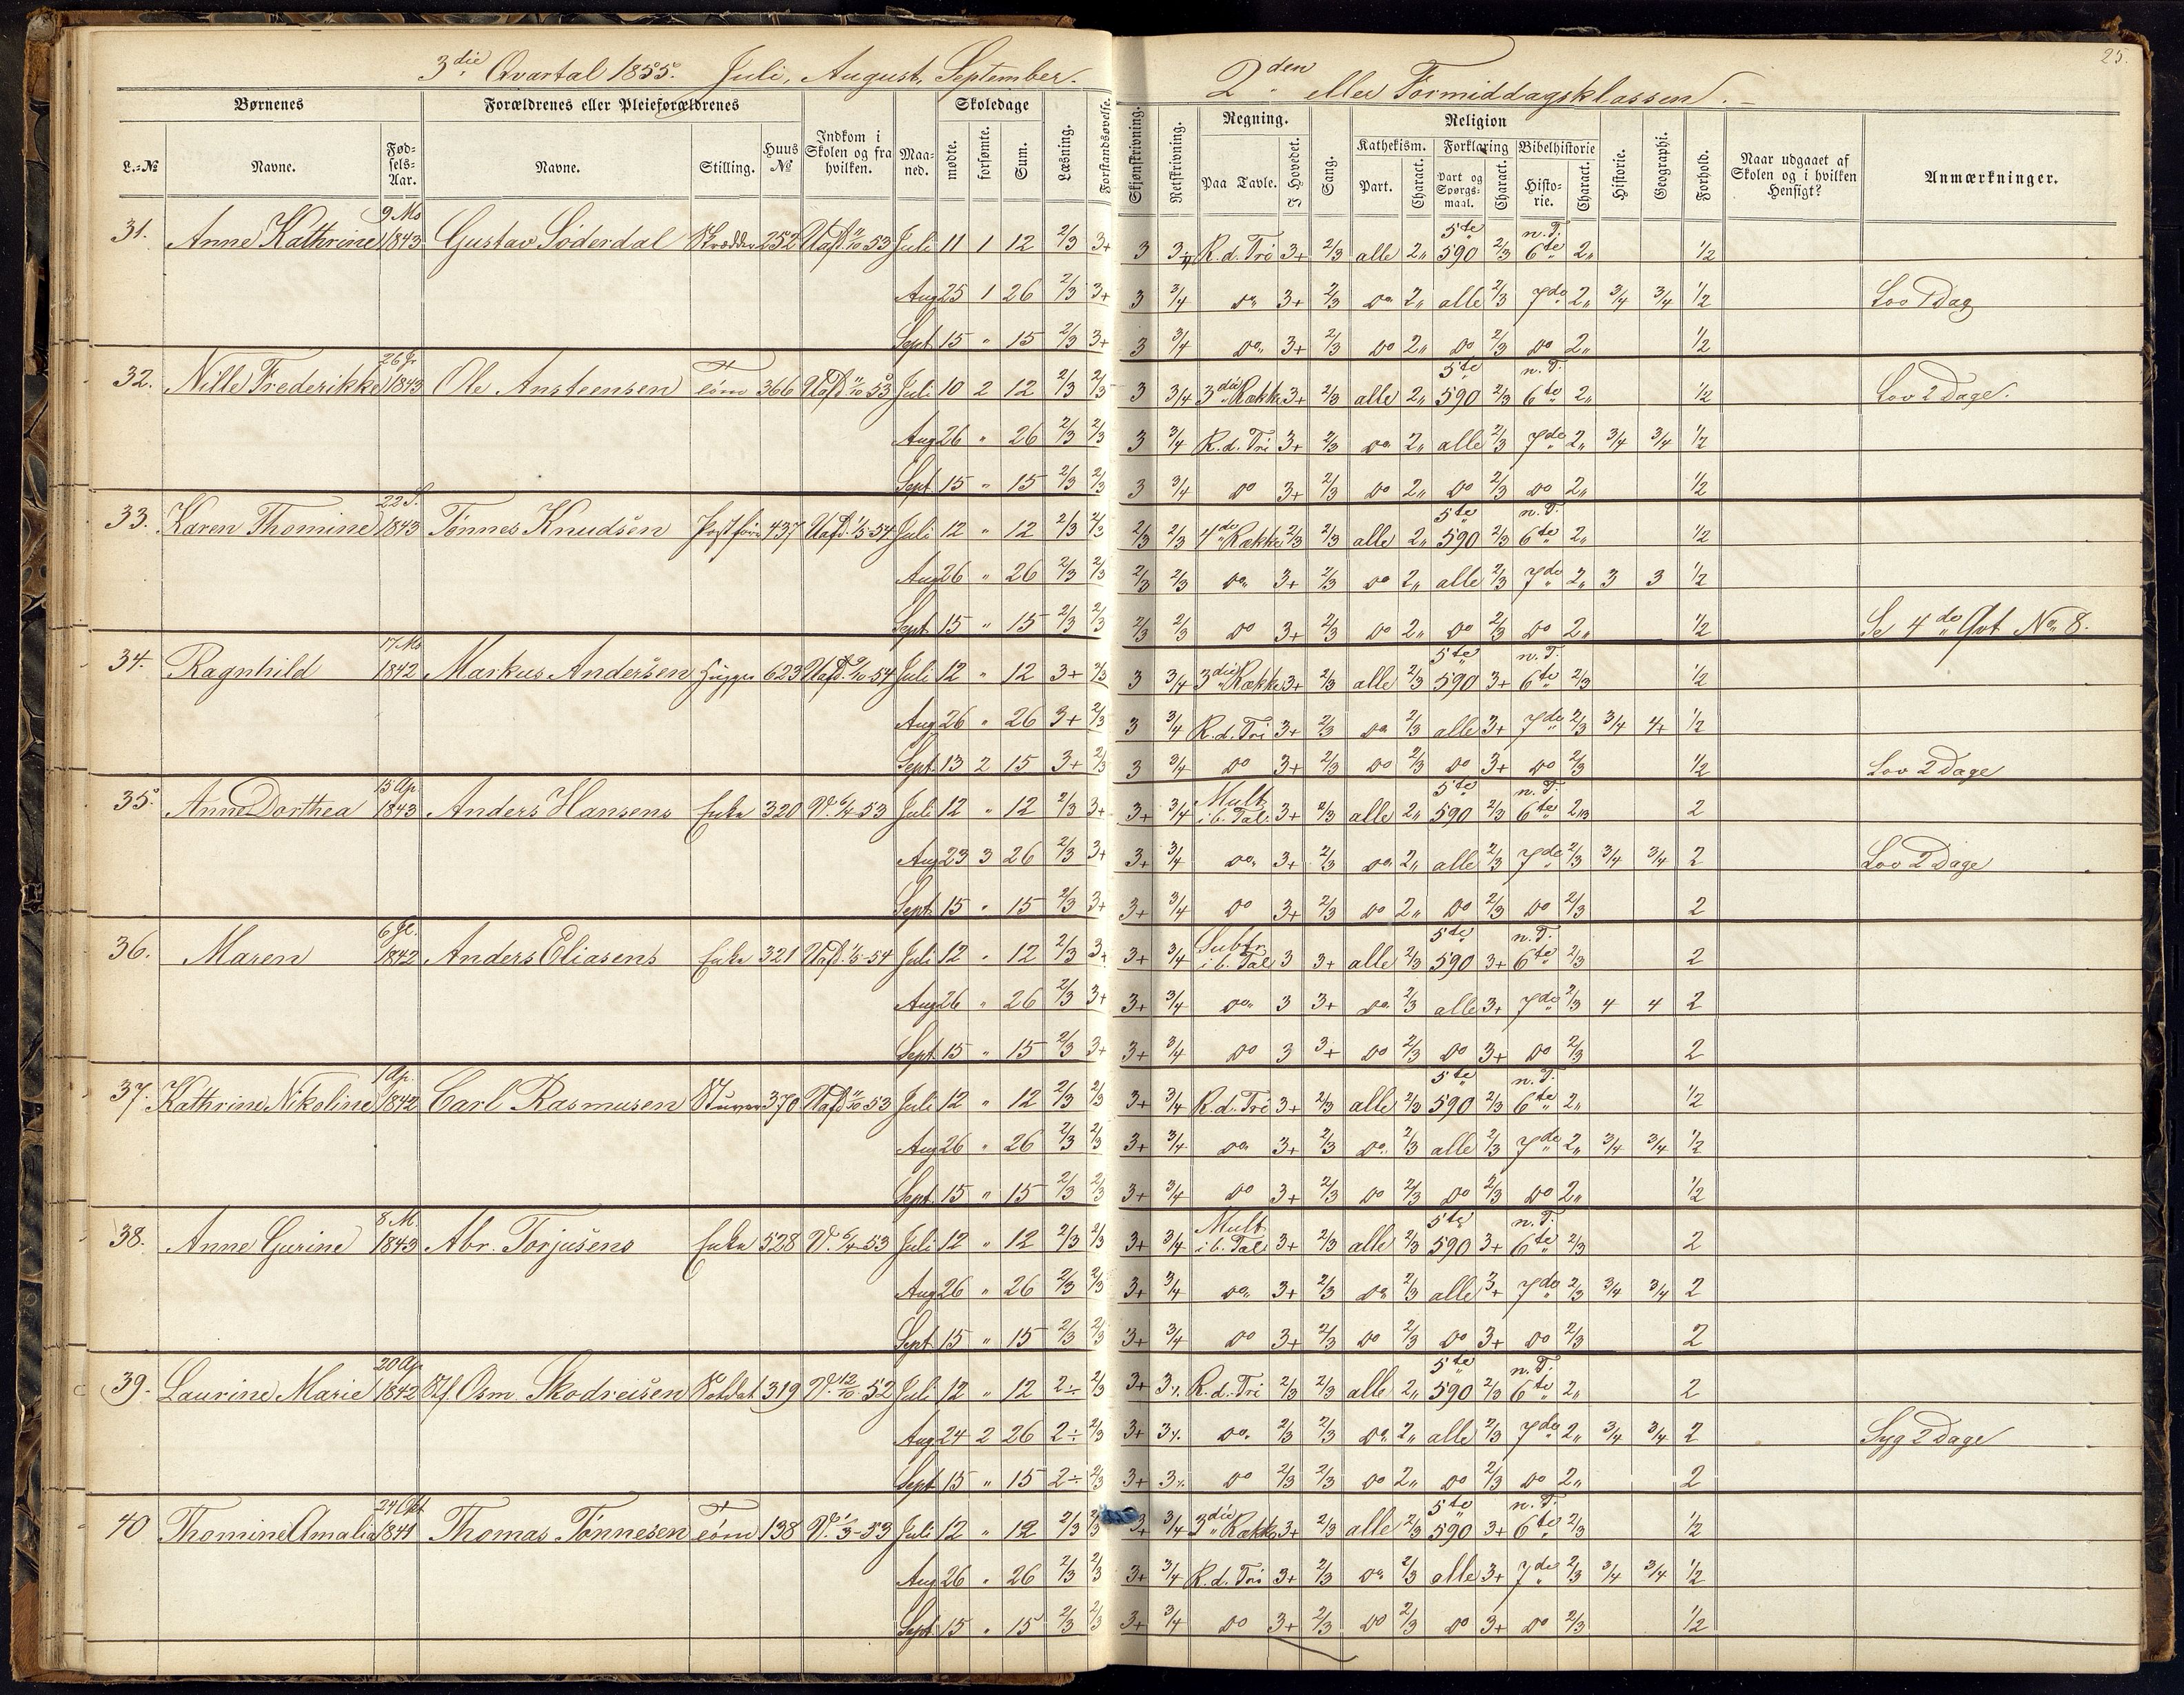 3die Qvartal 1855. Juli, August, September.
2den eller Formiddagsklassen.
25.
Børnenes Forældrenes eller Pleieforældrenes Indkom i Skolen og fra hvilken. Maaned. Skoledage Læsning. Forstandsøvelse. Skjønskrivning. Retskrivning. Regning. Sang. Religion Historie. Geographi. Forhold. Naar udgaaet af Skolen og i hvilken Hensigt? Anmærkninger.
L.-№ Navne. Fødsels-Aar. Navne. Stilling. Huus № mødte. forsømte. Sum. Paa Tavle. I Hovedet. Kathekism. Forklaring Bibelhistorie
Part. Charact. Part og Spørgsmaal. Charact. Historie. Charact.
9 Ms 5te n.T.
31. Anne Kathrine 1843 Gustav Söderdal Skrædder 252 Juli 11 1 12 2/3 3+ 3 R.d.Tri 3+ 2/3 alle 2„ 590 2/3 6te 2„ 1/2
Aug 25 1 26 2/3 3+ 3 3/4 do 3+ 2/3 do 2„ alle 2/3 7de 2„ 3/4 3/4 1/2 Lov 1 Dag
Sept 15 „ 15 2/3 3+ 3 3/4 do 3+ 2/3 do 2„ do 2/3 do 2„ 1/2
5te n.T.
32. Nille Frederikke 1843 Ole Ansteensen Tøm 366 Juli 10 2 12 2/3 2/3 3 3/4 3die Række 3+ 2/3 alle 2„ 590 2/3 6te 2„ 1/2 Lov 2 Dage.
Aug 26 „ 26 2/3 2/3 3 3/4 R.d.Tri 3+ 2/3 do 2„ alle 2/3 7de 2„ 3/4 3/4 1/2
Sept 15 „ 15 2/3 2/3 3 3/4 do 3+ 2/3 do 2„ do 2/3 do 2„ 1/2
22 S. 5te n.T.
33. Karen Thomine 1843 Tønnes Knudsen 437 Juli 12 „ 12 2/3 2/3 2/3 2/3 4de Række 2/3 2/3 alle 2„ 590 2/3 6te 2„ 1/2
Aug 26 „ 26 2/3 2/3 2/3 2/3 do 3+ 2/3 do 2„ alle 2/3 7de 2„ 3 3 1/2
Sept 15 „ 15 2/3 2/3 2/3 2/3 do 3+ 2/3 do 2„ do 2/3 do 2„ 1/2 Se 4de Qvt No 8.
17 Ms 5te n.T.
34. Ragnhild 1842 Markus Andersen 623 Juli 12 „ 12 3+ 2/3 3 3/4 3die Række 3+ 2/3 alle 2/3 590 3+ 6te 2/3 1/2
Aug 26 „ 26 3+ 2/3 3 3/4 R.d.Tri 3+ 2/3 do 2/3 alle 3+ 7de 2/3 3/4 4+ 1/2
Sept 13 2 15 3+ 2/3 3 3/4 do 3+ 2/3 do 2/3 do 3+ do 2/3 1/2 Lov 2 Dage
15 Ap. Mult 5te n.T.
35. Anne Dorthea 1843 Anders Hansens Enke 320 V. 6/4-53 Juli 12 „ 12 2/3 3+ 3+ 3/4 i b. Tal 3+ 2/3 alle 2„ 590 2/3 6te 2
Aug 23 3 26 2/3 3+ 3+ 3/4 do 3+ 2/3 do 2„ alle 2/3 7de 2/3 3/4 3/4 2 Lov 2 Dage
Sept 15 „ 15 2/3 3+ 3+ 3/4 do 3+ 2/3 do 2„ do 2/3 do 2/3 2
Subtr. 5te n.T.
36. Maren 1842 Anders Eliasens Enke 321 Juli 12 „ 12 2/3 3+ 3+ 3/4 i b. Tal 3 3+ alle 2/3 590 3+ 6te 2/3 2
Aug 26 „ 26 2/3 3+ 3+ 3/4 do 3 3+ do 2/3 alle 3+ 7de 2/3 4 4 2
Sept 15 „ 15 2/3 3+ 3+ 3/4 do 3 3+ do 2/3 do 3+ do 2/3 2
1 Ap. 5te n.T.
37. Kathrine Nikoline 1842 Carl Rasmusen 370 Juli 12 „ 12 2/3 2/3 3+ 3/4 R.d.Tri 3+ 2/3 alle 2/3 590 2/3 6te 2„ 1/2
Aug 26 „ 26 2/3 2/3 3+ 3/4 do 3+ 2/3 do 2/3 alle 2/3 7de 2„ 3/4 3/4 1/2
Sept 15 „ 15 2/3 2/3 3+ 3/4 do 3+ 2/3 do 2/3 do 2/3 do 2„ 1/2
8 M. Mult 5te n.T.
38. Anne Gurine 1843 Abr. Torjusens Enke 528 V. 6/4-53 Juli 12 „ 12 2/3 2/3 3+ 3/4 i b. Tal 3+ 2/3 alle 2/3 590 3+ 6te 2/3 2
Aug 26 „ 26 2/3 2/3 3+ 3/4 do 3+ 2/3 do 2/3 alle 3+ 7de 2/3 3/4 3/4 2
Sept 15 „ 15 2/3 2/3 3+ 3/4 do 3+ 2/3 do 2/3 do 3+ do 2/3 2
20 Ap. 5te n.T.
39. Laurine Marie 1842 Stf. Osm. Skodreisen Soldat 319 V. 12/10-52 Juli 12 „ 12 2÷ 2/3 3+ R.d.Tri 2/3 2/3 alle 2„ 590 2/3 6te 2„ 2
Aug 24 2 26 2÷ 2/3 3+ do 2/3 2/3 do 2„ alle 2/3 7de 2„ 3/4 3/4 2 Syg 2 Dage
Sept 15 „ 15 2÷ 2/3 3+ do 2/3 2/3 do 2„ do 2/3 do 2„ 2
5te n.T.
40 Thomine Amalia 1841 Thomas Tønnesen Tøm 138 V. 1/3-53 Juli 12 „ 12 2/3 2/3 3+ 3/4 3die Række 3+ 2/3 alle 2/3 590 3+ 6te 2/3 1/2
Aug 26 „ 26 2/3 2/3 3+ 3/4 R.d.Tri 3+ 2/3 do 2/3 alle 3+ 7de 2/3 3/4 3/4 1/2
Sept 15 „ 15 2/3 2/3 3+ 3/4 do 3+ 2/3 do 2/3 do 3+ do 2/3 1/2